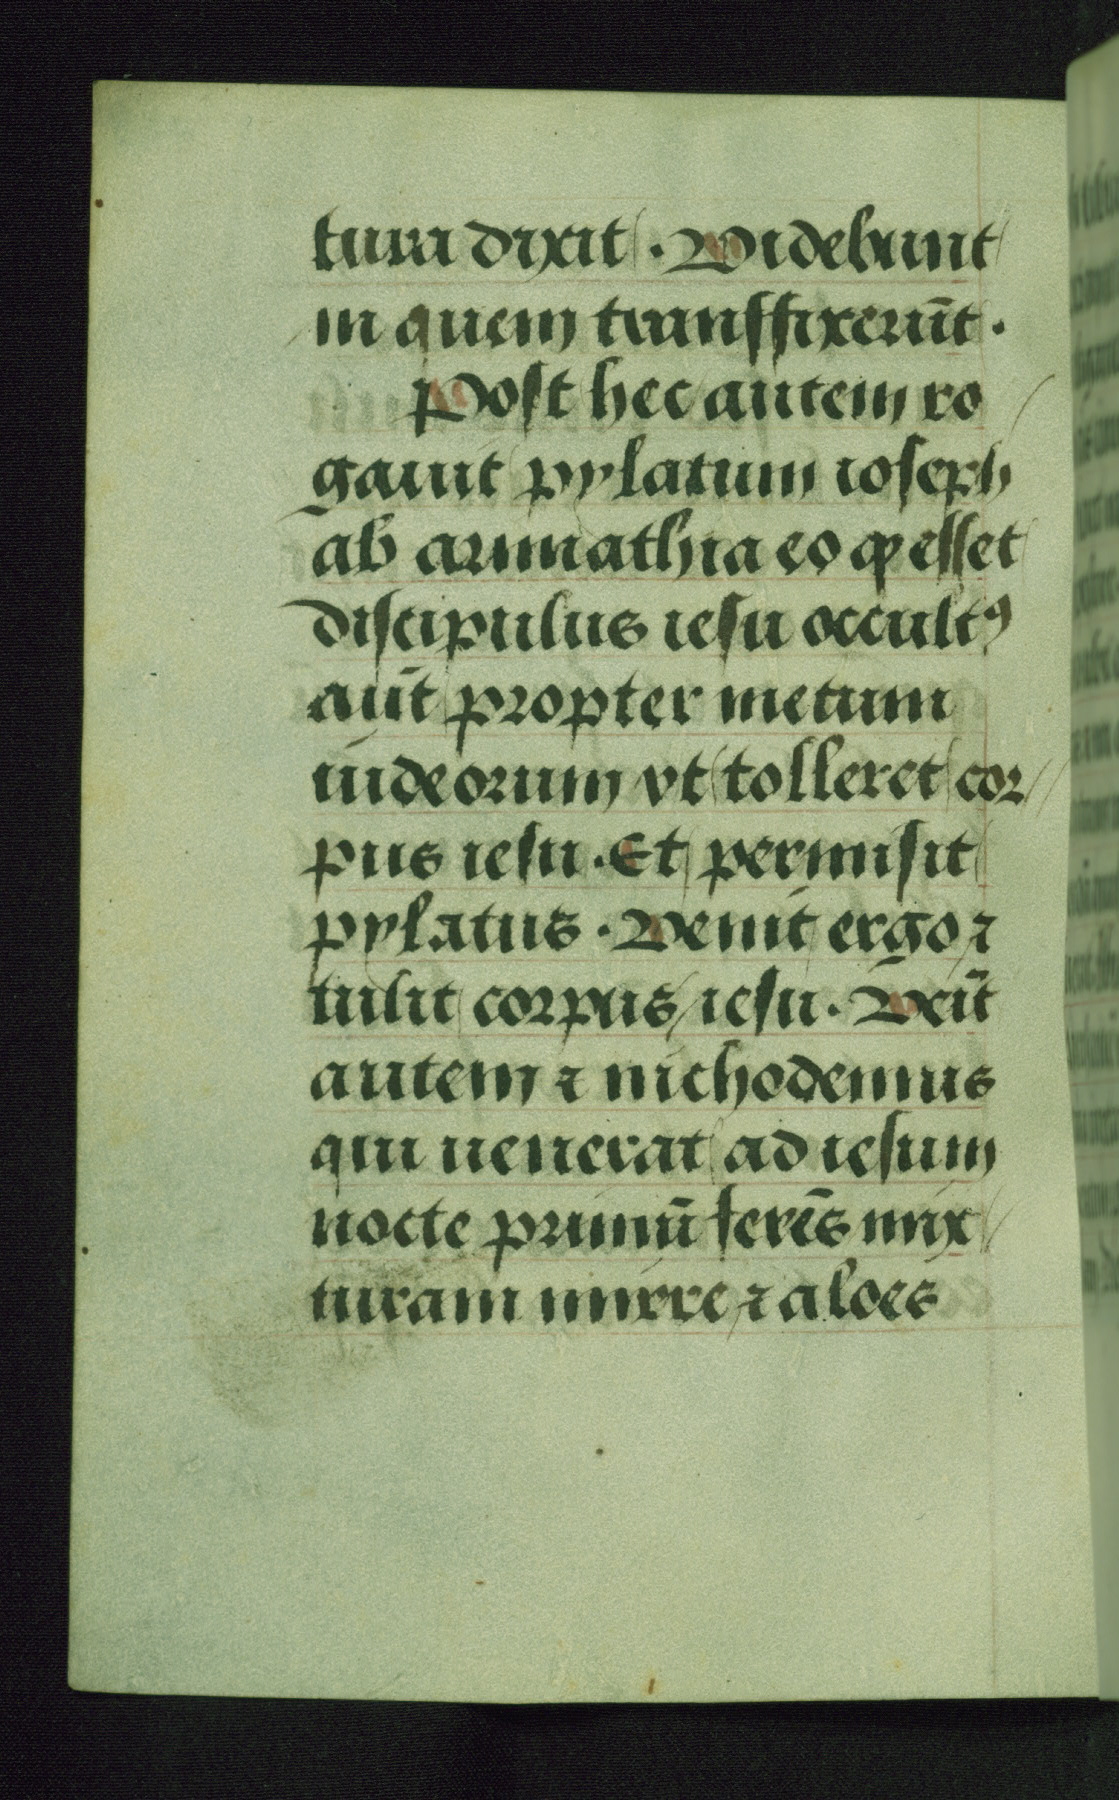 tura dixit. Videbunt
in quem transfixerūt.
Post hec autem ro
gauit pylatum ioseph
ab arimathia eo ꝙ esset
discipulus iesu occultꝰ
aūt propter metum
iudeorum vt tolleret cor
pus iesu. Et permisit
pylatus. Venit ergo ⁊
tulit corpus iesu. Vēit
autem ⁊ nichodemus
qui uenerat ad iesum
nocte primū ferēs mix
turam mirre ⁊ aloes